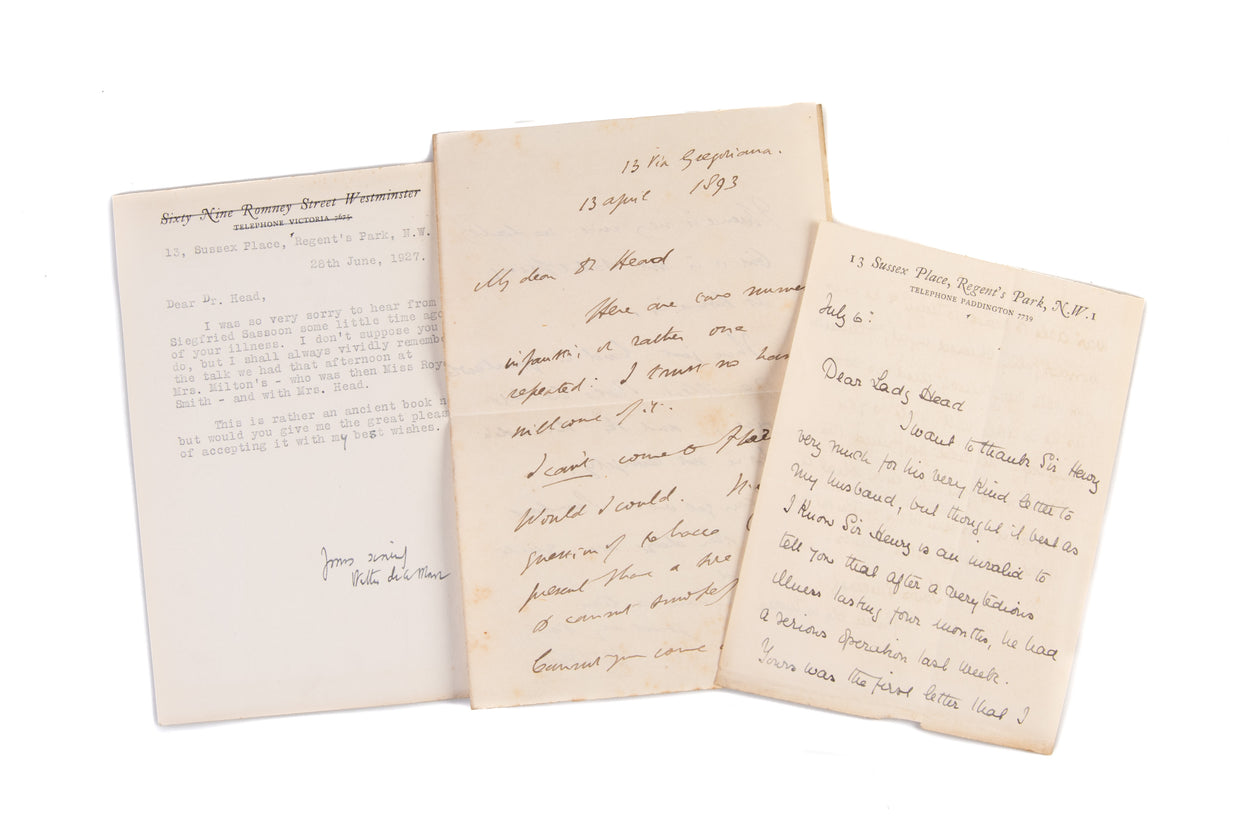 Sixty Nine Romney Street Westminster
TELEPHONE VICTORIA 7675
13, Sussex Place, Regent's Park, N.W.
28th June, 1927.
Dear Dr. Head,
I was so very sorry to hear from
Siegfried Sassoon some little time ago
of your illness. I don't suppose you
do, but I shall always vividly remembe
the talk we had that afternoon at
Mrs. Milton's - who was then Miss Roy
Smith - and with Mrs. Head.
This is rather an ancient book n
but would you give me the great pleas
of accepting it with my best wishes.
Walter de la Mare
13 Via Gregoriana.
13 april 1893
My dear Dr Head
Here are two numer
or rather one
repeated: I trust no har
will come of it.
I can't come to
Would I could.
question of tobacco
present
cannot smoke
Cannot you come
13 Sussex Place, Regent's Park, N.W.1
TELEPHONE PADDINGTON 7739
July 6:
Dear Lady Head
I want to thank Sir Henry
very much for his very kind letter to
my husband, but thought it best as
I know Sir Henry is an invalid to
tell you that after a very tedious
illness lasting four months, he had
a serious operation last week.
Yours was the first letter that I